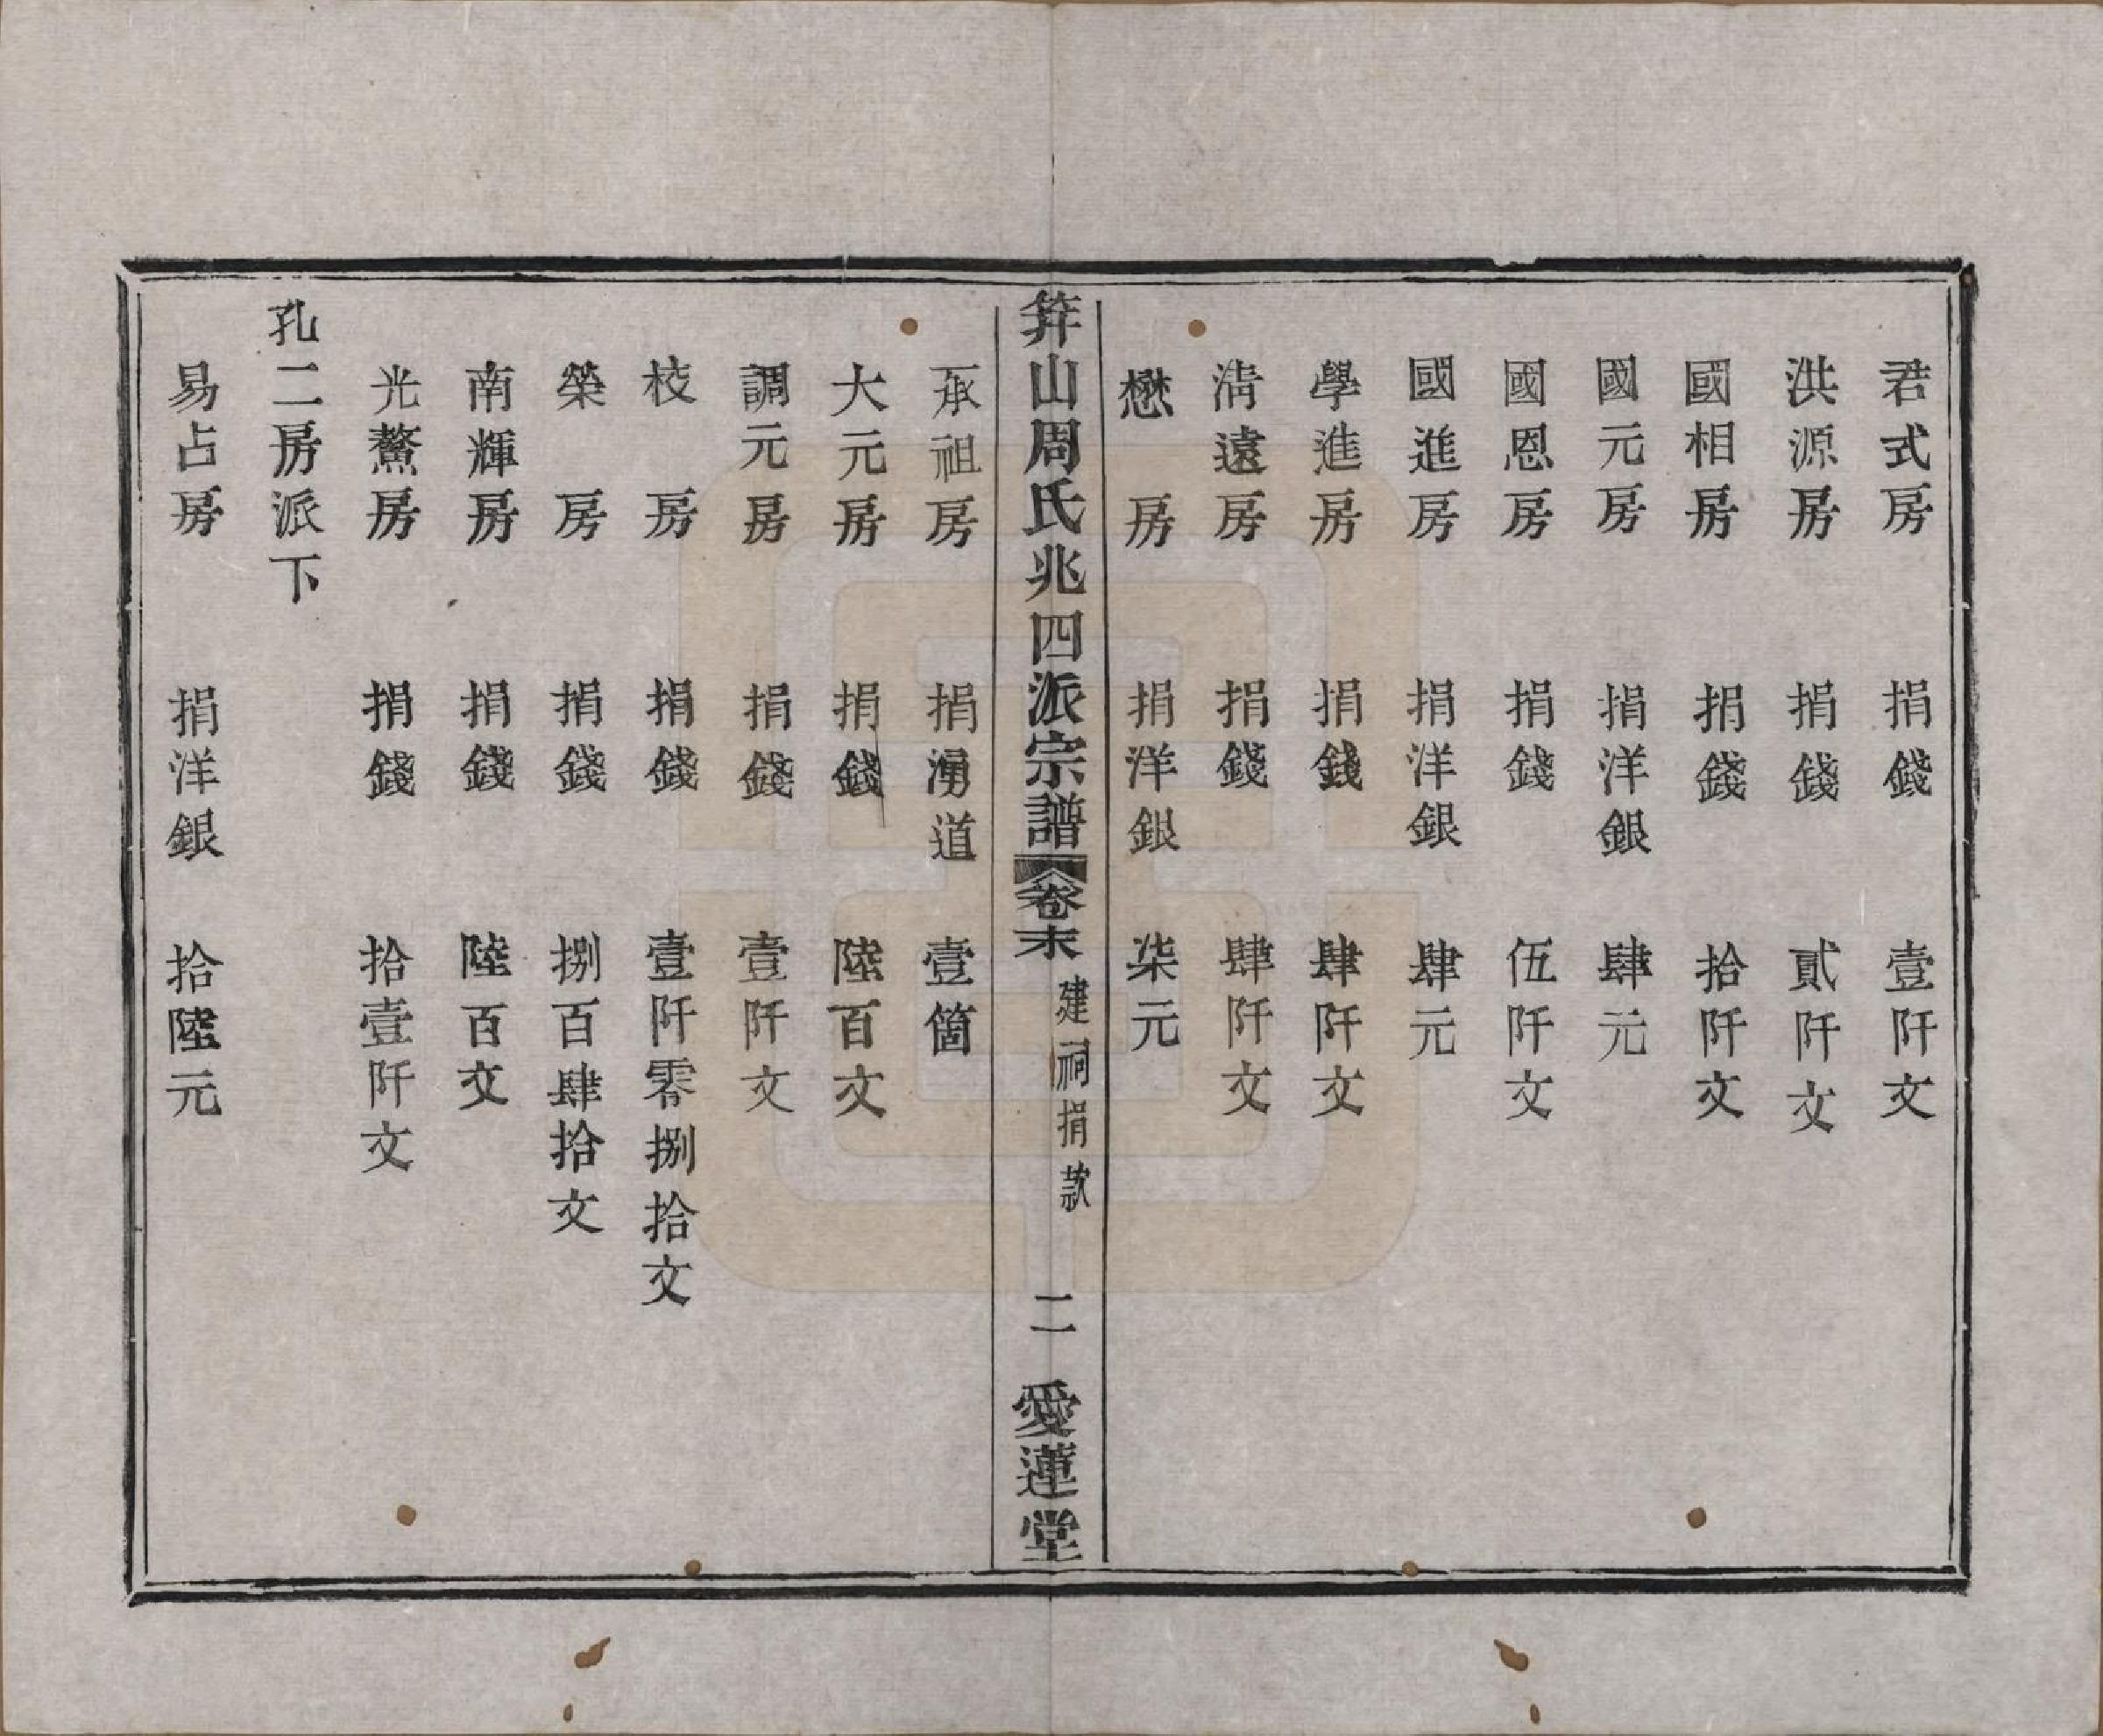 君式房 捐錢 壹阡文
洪源房 捐錢 貳阡文
國相房 捐錢 拾阡文
國元房 捐洋銀 肆元
國恩房 捐錢 伍阡文
國進房 捐洋銀 肆元
學進房 捐錢 肆阡文
清遠房 捐錢 肆阡文
懋房 捐洋銀 柒元
筭山周氏兆四派宗譜 卷末 建祠捐款 二 愛蓮堂
承祖房 捐湧道 壹箇
大元房 捐錢 陸百文
調元房 捐錢 壹阡文
校房 捐錢 壹阡零捌拾文
榮房 捐錢 捌百肆拾文
南輝房 捐錢 陸百文
光鰲房 捐錢 拾壹阡文
孔二房派下
易占房 捐洋銀 拾陸元